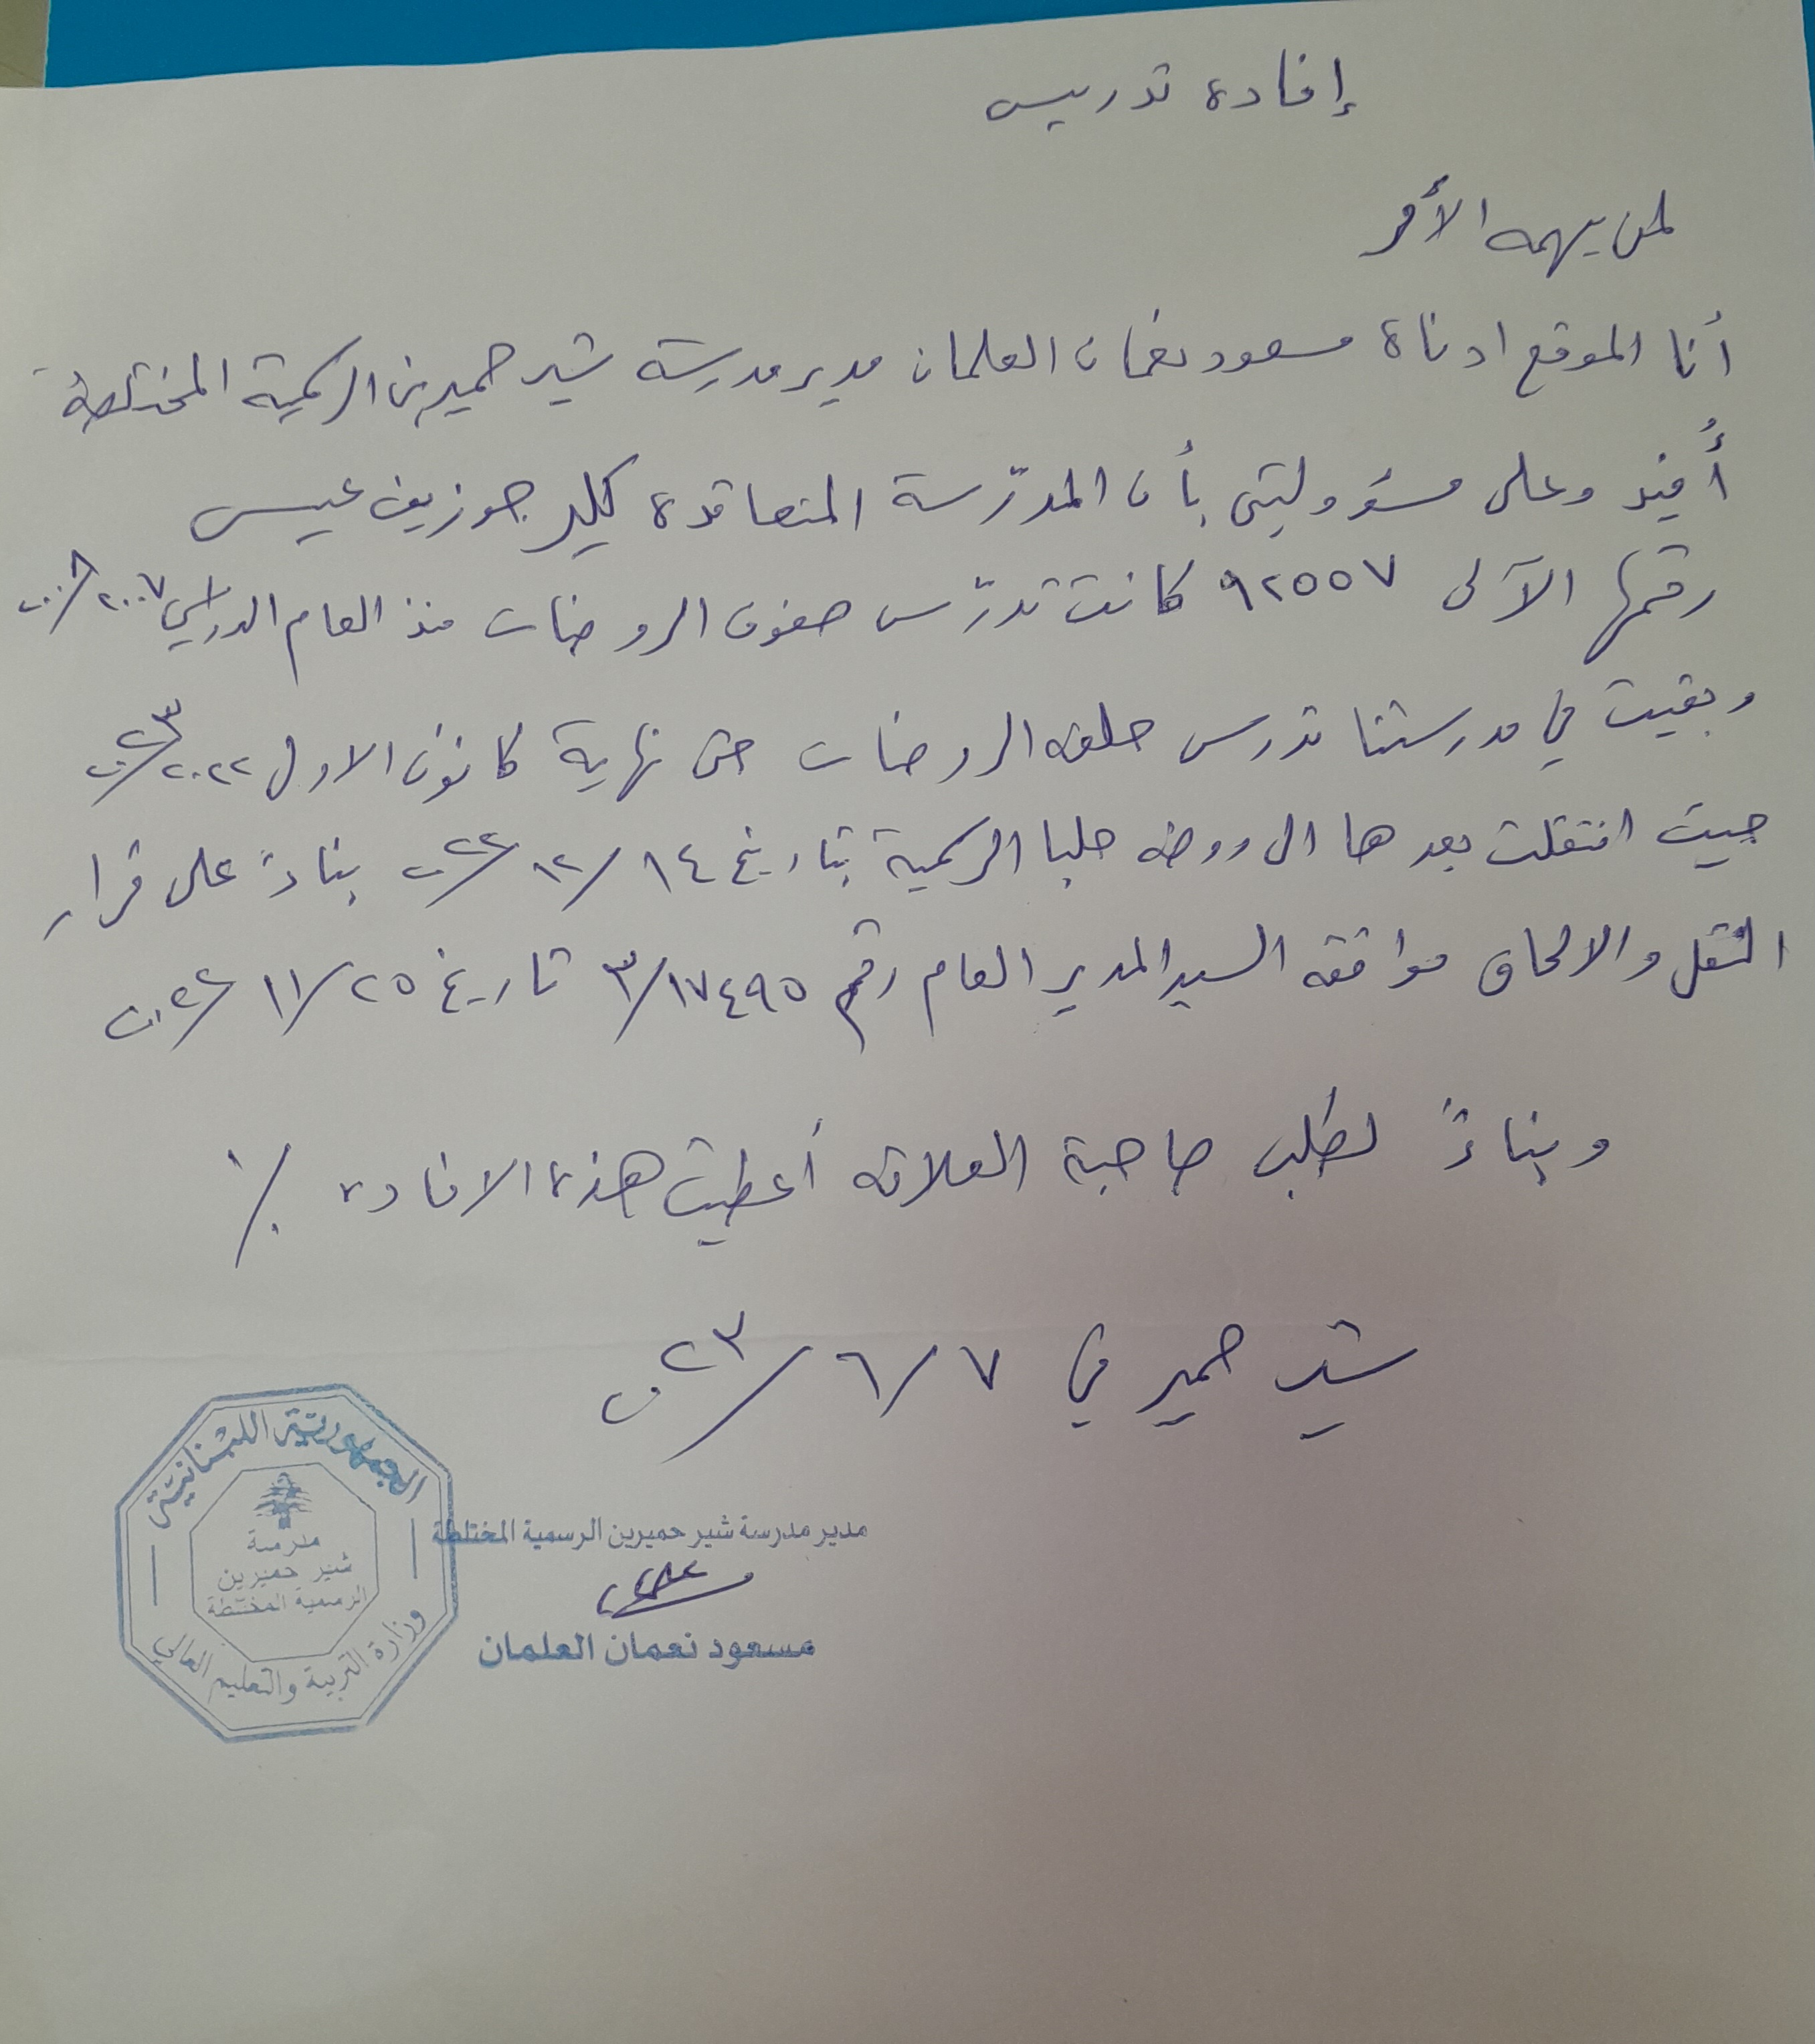 إفادة تدريس
لمن يهمه الأمر
أنا الموقع ادناة مسعود نعمان العلمان مدير مدرسة شير حميرين الرسمية المختلطة
أُفيد وعلى مسؤوليتي بأن المدرّسة المتعاقدة كلير جوزيف عيسى
رقمها الآلي ٩٢٥٥٧ كانت تدرّس صفوف الروضات منذ العام الدراسي ٢٠٠٧/٢٠٠٨
وبقيت في مدرستنا تدرس حلقة الروضات حتى نهاية كانون الاول ٢٠٢٢/٢٠٢٣
حيث انتقلت بعدها الى روضة حلبا الرسمية بتاريخ ١٤/١٢/٢٠٢٢ بناءً على قرار
النقل والالحاق موافقة السيد المدير العام رقم ٣/١٧٤٩٥ تاريخ ٢٥/١١/٢٠٢٢
وبناءً لطلب صاحبة العلاقة أعطيت هذه الافادة ./
شير حميرين في ٧/٦/٢٠٢٣
الجمهورية اللبنانية
مدرسة
شير حميرين
الرسمية المختلطة
وزارة التربية والتعليم العالي
مدير مدرسة شير حميرين الرسمية المختلطة
مسعود نعمان العلمان